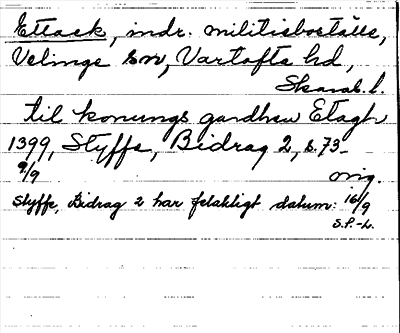 Ettack, indr. militieboställe,
Velinge sn, Vartofta hd,
Skarab. l.
til konungs gardhen Etagh
1399, Styffe, Bidrag 2, s. 73
9/9 orig.
Styffe, Bidrag 2 har felaktigt datum: 16/9
S.P.-L.